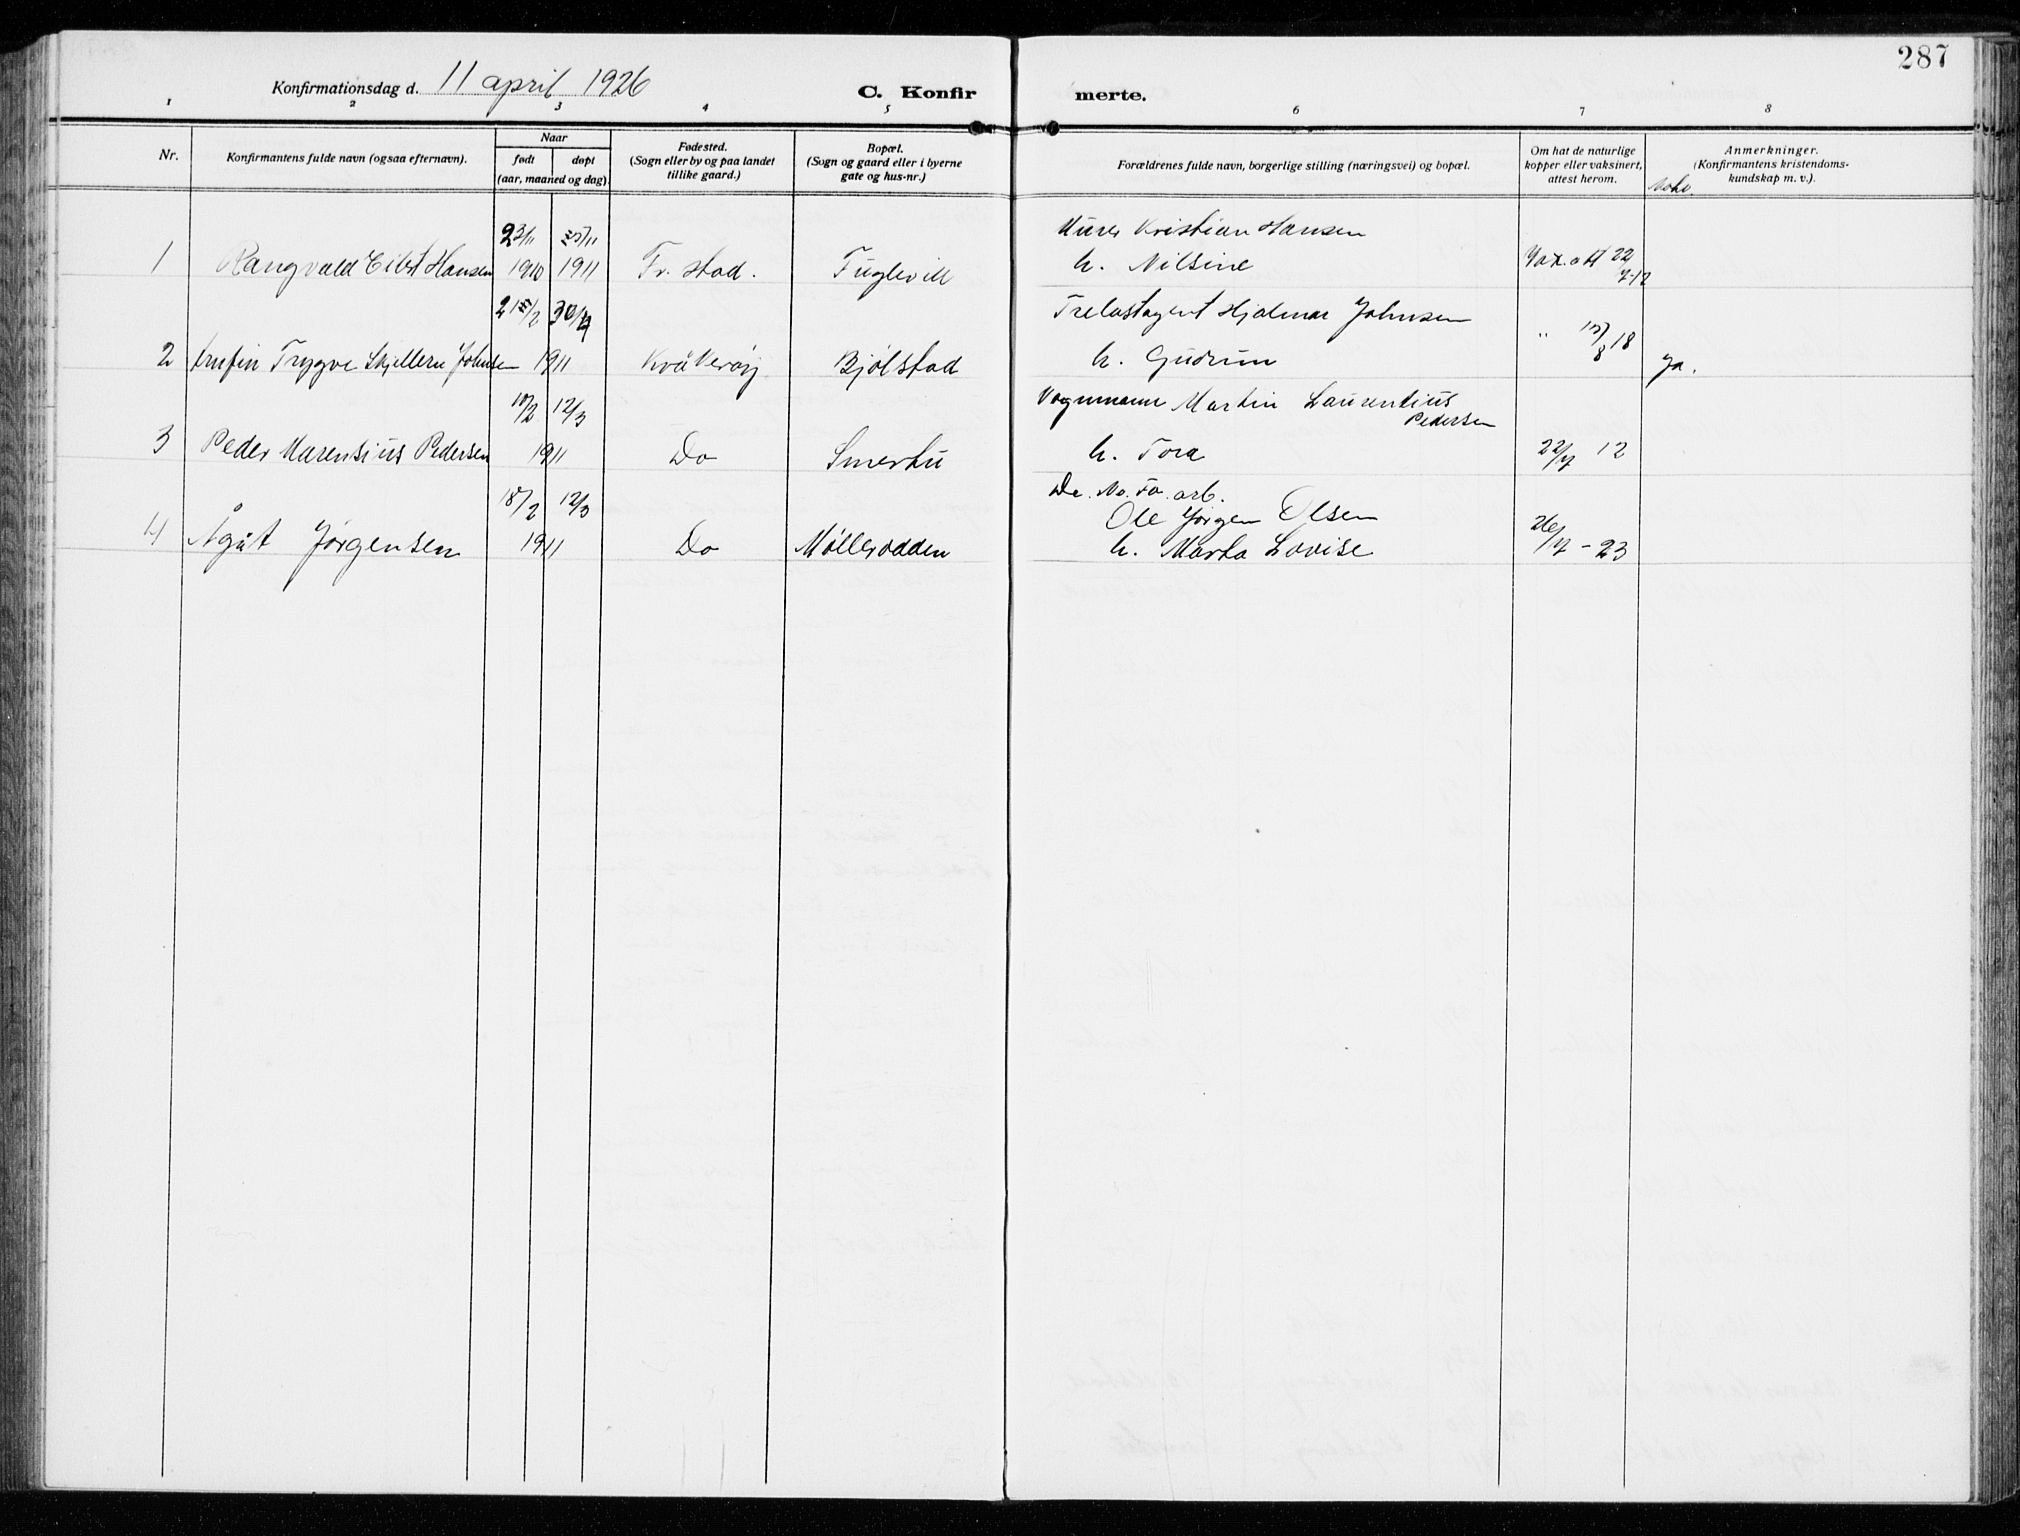 287
Konfirmationsdag d. 11 april 1926
C. Konfir merte.
1 2 3 4 5 6 7 8
Nr.
Konfirmantens fulde navn (ogsaa efternavn).
Naar
født døpt
(aar, maaned og dag).
Fødested.
(Sogn eller by og paa landet
tillike gaard.)
Bopæl.
(Sogn og gaard eller i byerne
gate og hus-nr.)
Forældrenes fulde navn, borgerlige stilling (næringsvei) og bopæl.
Om hat de naturlige
kopper eller vaksinert,
attest herom.
Anmerkninger.
(Konfirmantens kristendoms-
kundskap m. v.).
23/11 Murer Kristian Hansen
1 Rangvald Eilert Hansen 1910 1911 Fr.stad. Fuglevik h. Nilsine Vax.att 22
7-12
30/4 Trelastagent Hjalmar Johnsen
2 Trygve Skjellern Johnsen 1911 Kråkerøy Bjølstad h. Gudrun " 18
Ja.
12/3 Vognmann Martin Laurentius
Pedersen
3 Peder Marensius Pedersen 1911 Do Smertu h. Tora 22/7 12
18/2 12/3 De. No. Fa. arb.
Ole Jørgen Olsen
4 Ågåt Jørgensen 1911 Do Møllerodden h. Marta Lovise 26/7 - 23